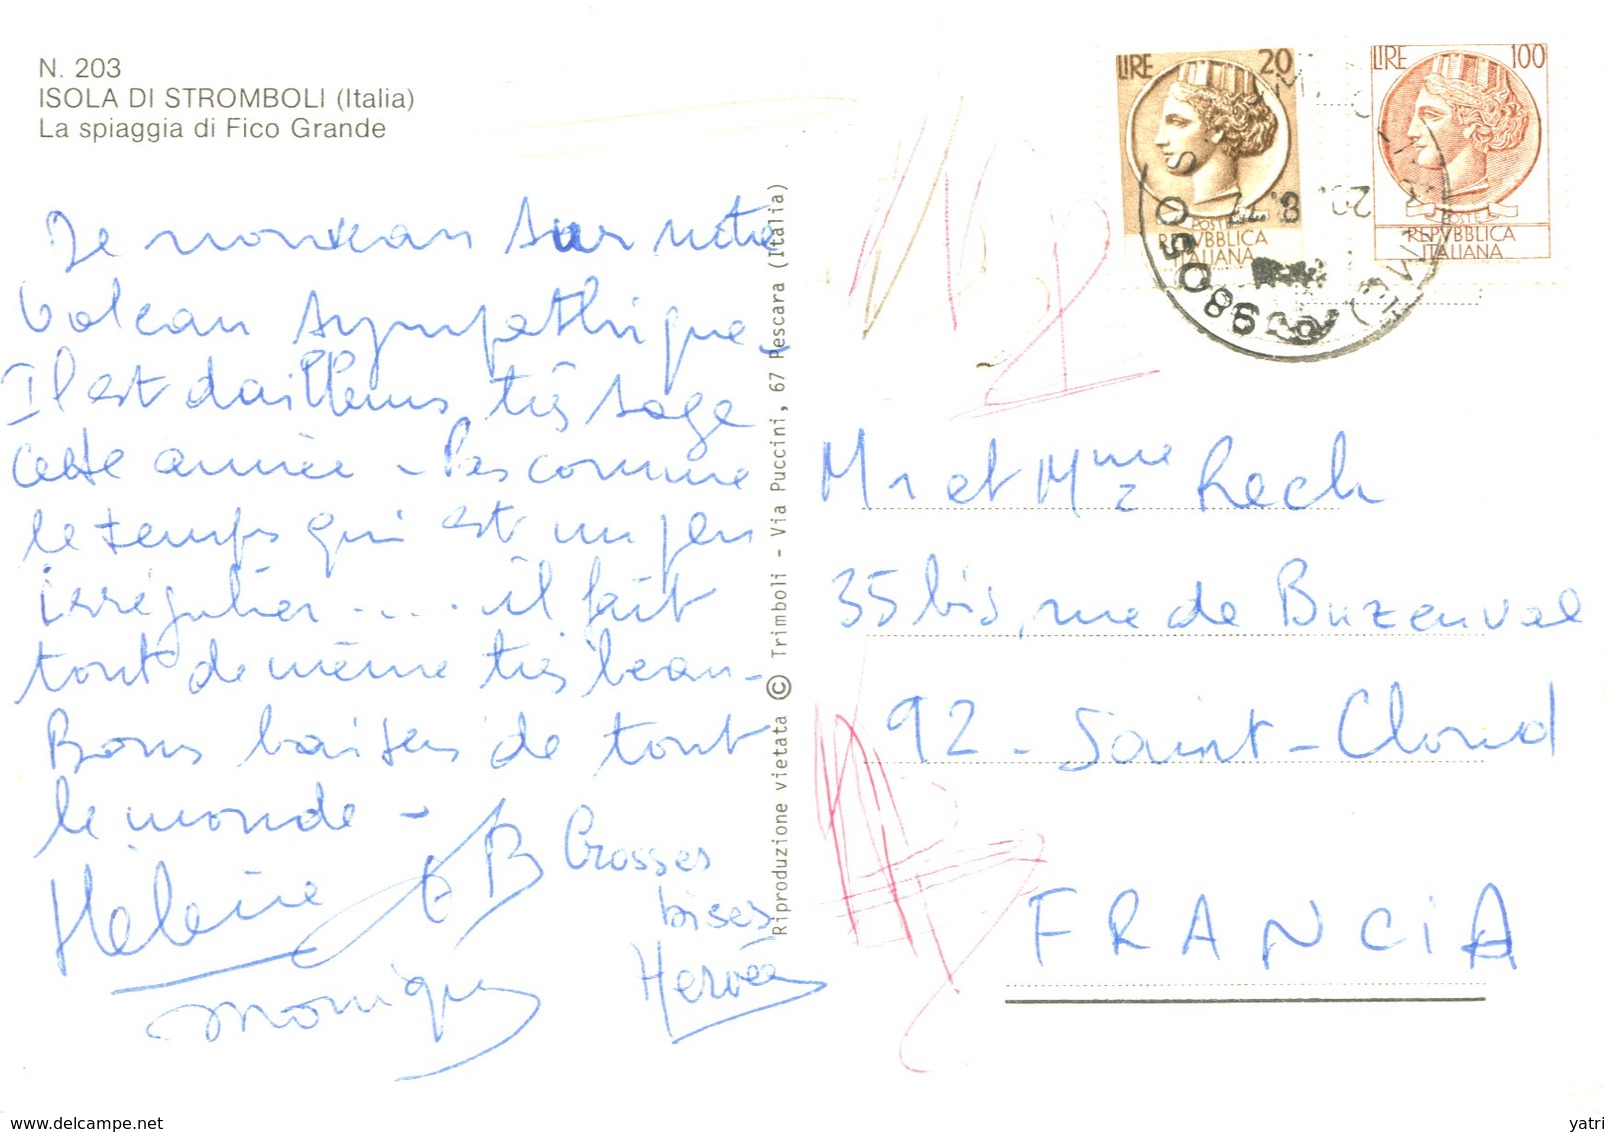 N. 203
ISOLA DI STROMBOLI (Italia)
La spiaggia di Fico Grande
LIRE 20
POSTE
REPVBBLICA
ITALIANA
LIRE 100
POSTE
REPVBBLICA
ITALIANA
98050
Je nouveau sur notre
volcan sympathique -
Il est dailleurs très sage
cette année - Pas comme
le temps qui est un peu
irrégulier .... il fait
tout de même très beau -
Bons baisers de tout
le monde -
Hélène
B
Monique
Grosses
bises
Hervée
Riproduzione vietata © Trimboli - Via Puccini, 67 Pescara (Italia)
Mr et Mme Rech
35 bis, rue de Buzenval
92 - Saint-Cloud
FRANCIA
www.delcampe.net
yatri